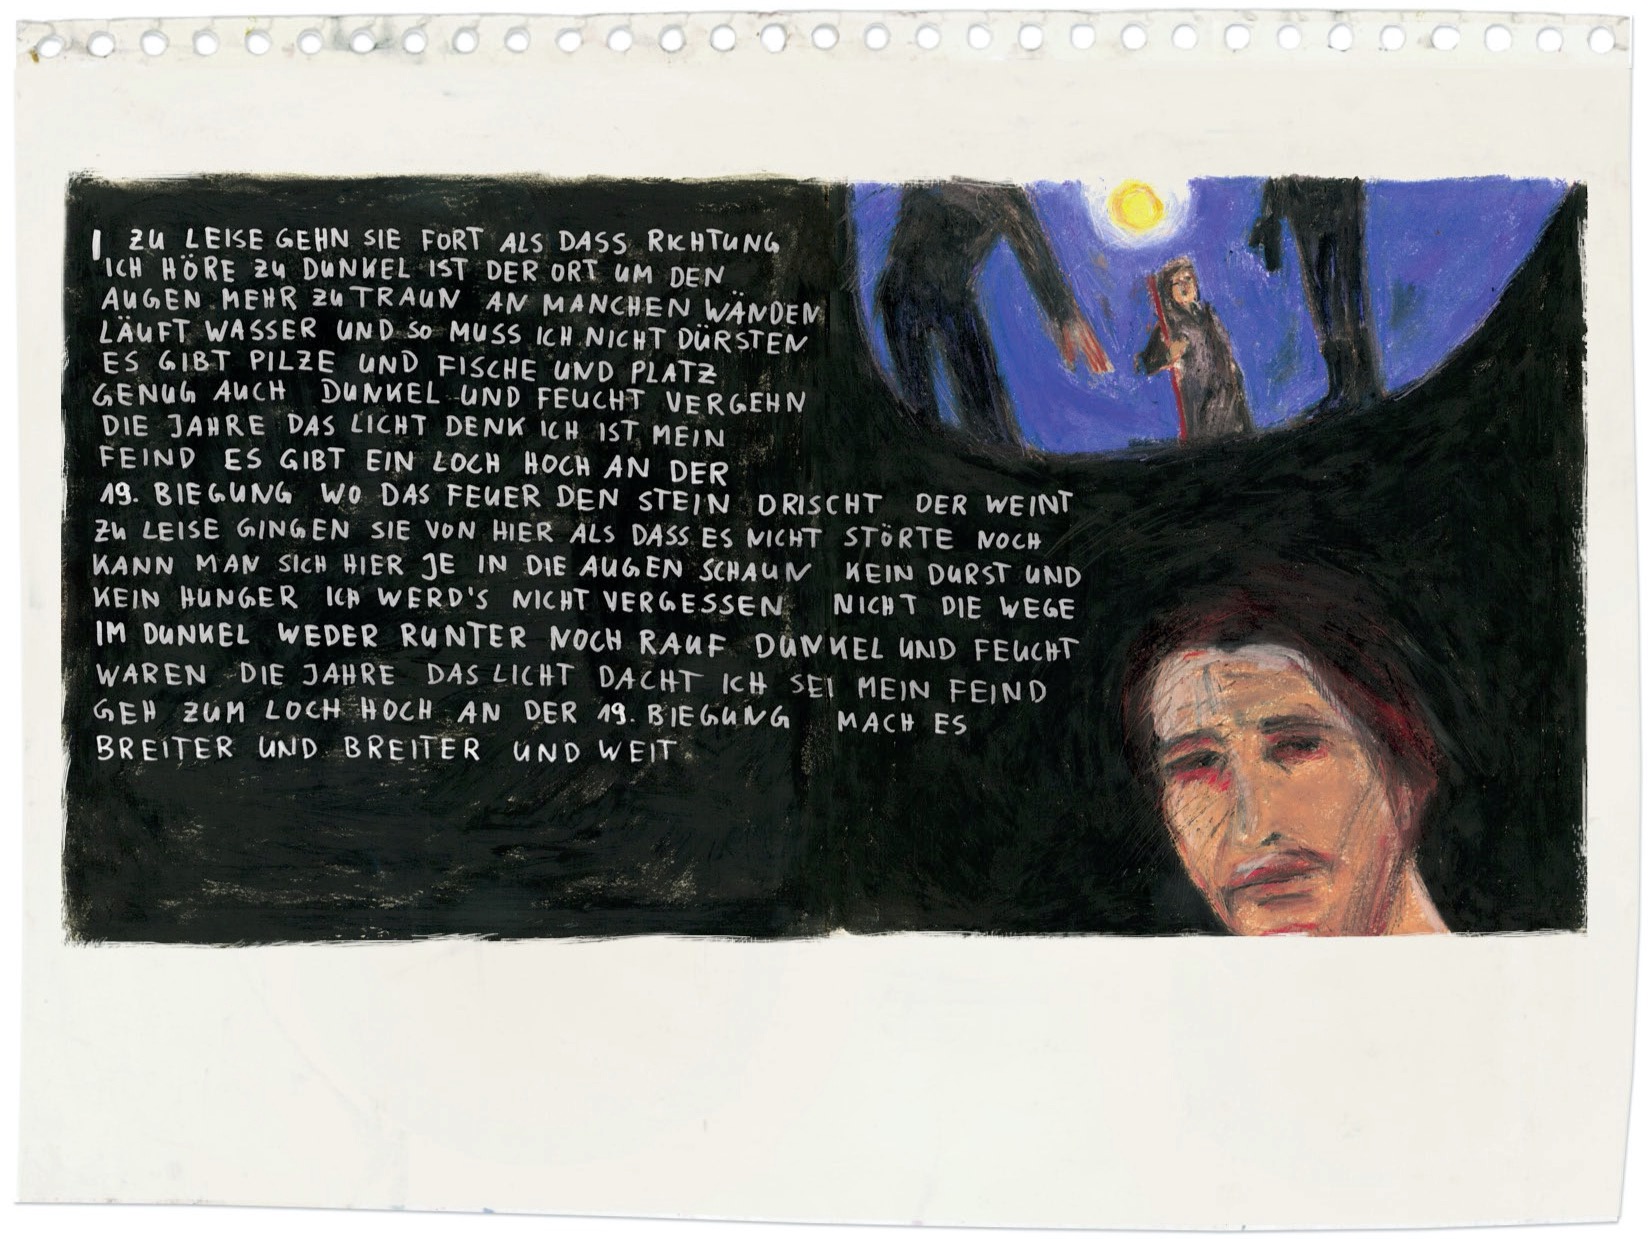 I ZU LEISE GEHN SIE FORT ALS DASS RICHTUNG
ICH HÖRE ZU DUNKEL IST DER ORT UM DEN
AUGEN MEHR ZU TRAUN AN MANCHEN WÄNDEN
LÄUFT WASSER UND SO MUSS ICH NICHT DÜRSTEN
ES GIBT PILZE UND FISCHE UND PLATZ
GENUG AUCH DUNKEL UND FEUCHT VERGEHN
DIE JAHRE DAS LICHT DENK ICH IST MEIN
FEIND ES GIBT EIN LOCH HOCH AN DER
19. BIEGUNG WO DAS FEUER DEN STEIN DRISCHT DER WEINT
ZU LEISE GINGEN SIE VON HIER ALS DASS ES NICHT STÖRTE NOCH
KANN MAN SICH HIER JE IN DIE AUGEN SCHAUN KEIN DURST UND
KEIN HUNGER ICH WERD'S NICHT VERGESSEN NICHT DIE WEGE
IM DUNKEL WEDER RUNTER NOCH RAUF DUNKEL UND FEUCHT
WAREN DIE JAHRE DAS LICHT DACHT ICH SEI MEIN FEIND
GEH ZUM LOCH HOCH AN DER 19. BIEGUNG MACH ES
BREITER UND BREITER UND WEIT